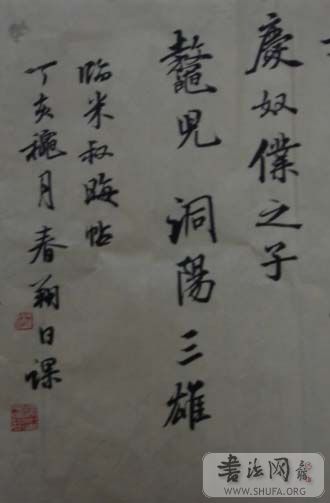 慶奴僕之子
鼇兒 洞陽三雄
临米叔晦帖
丁亥穐月春翔日课
書法网
WWW.SHUFA.ORG